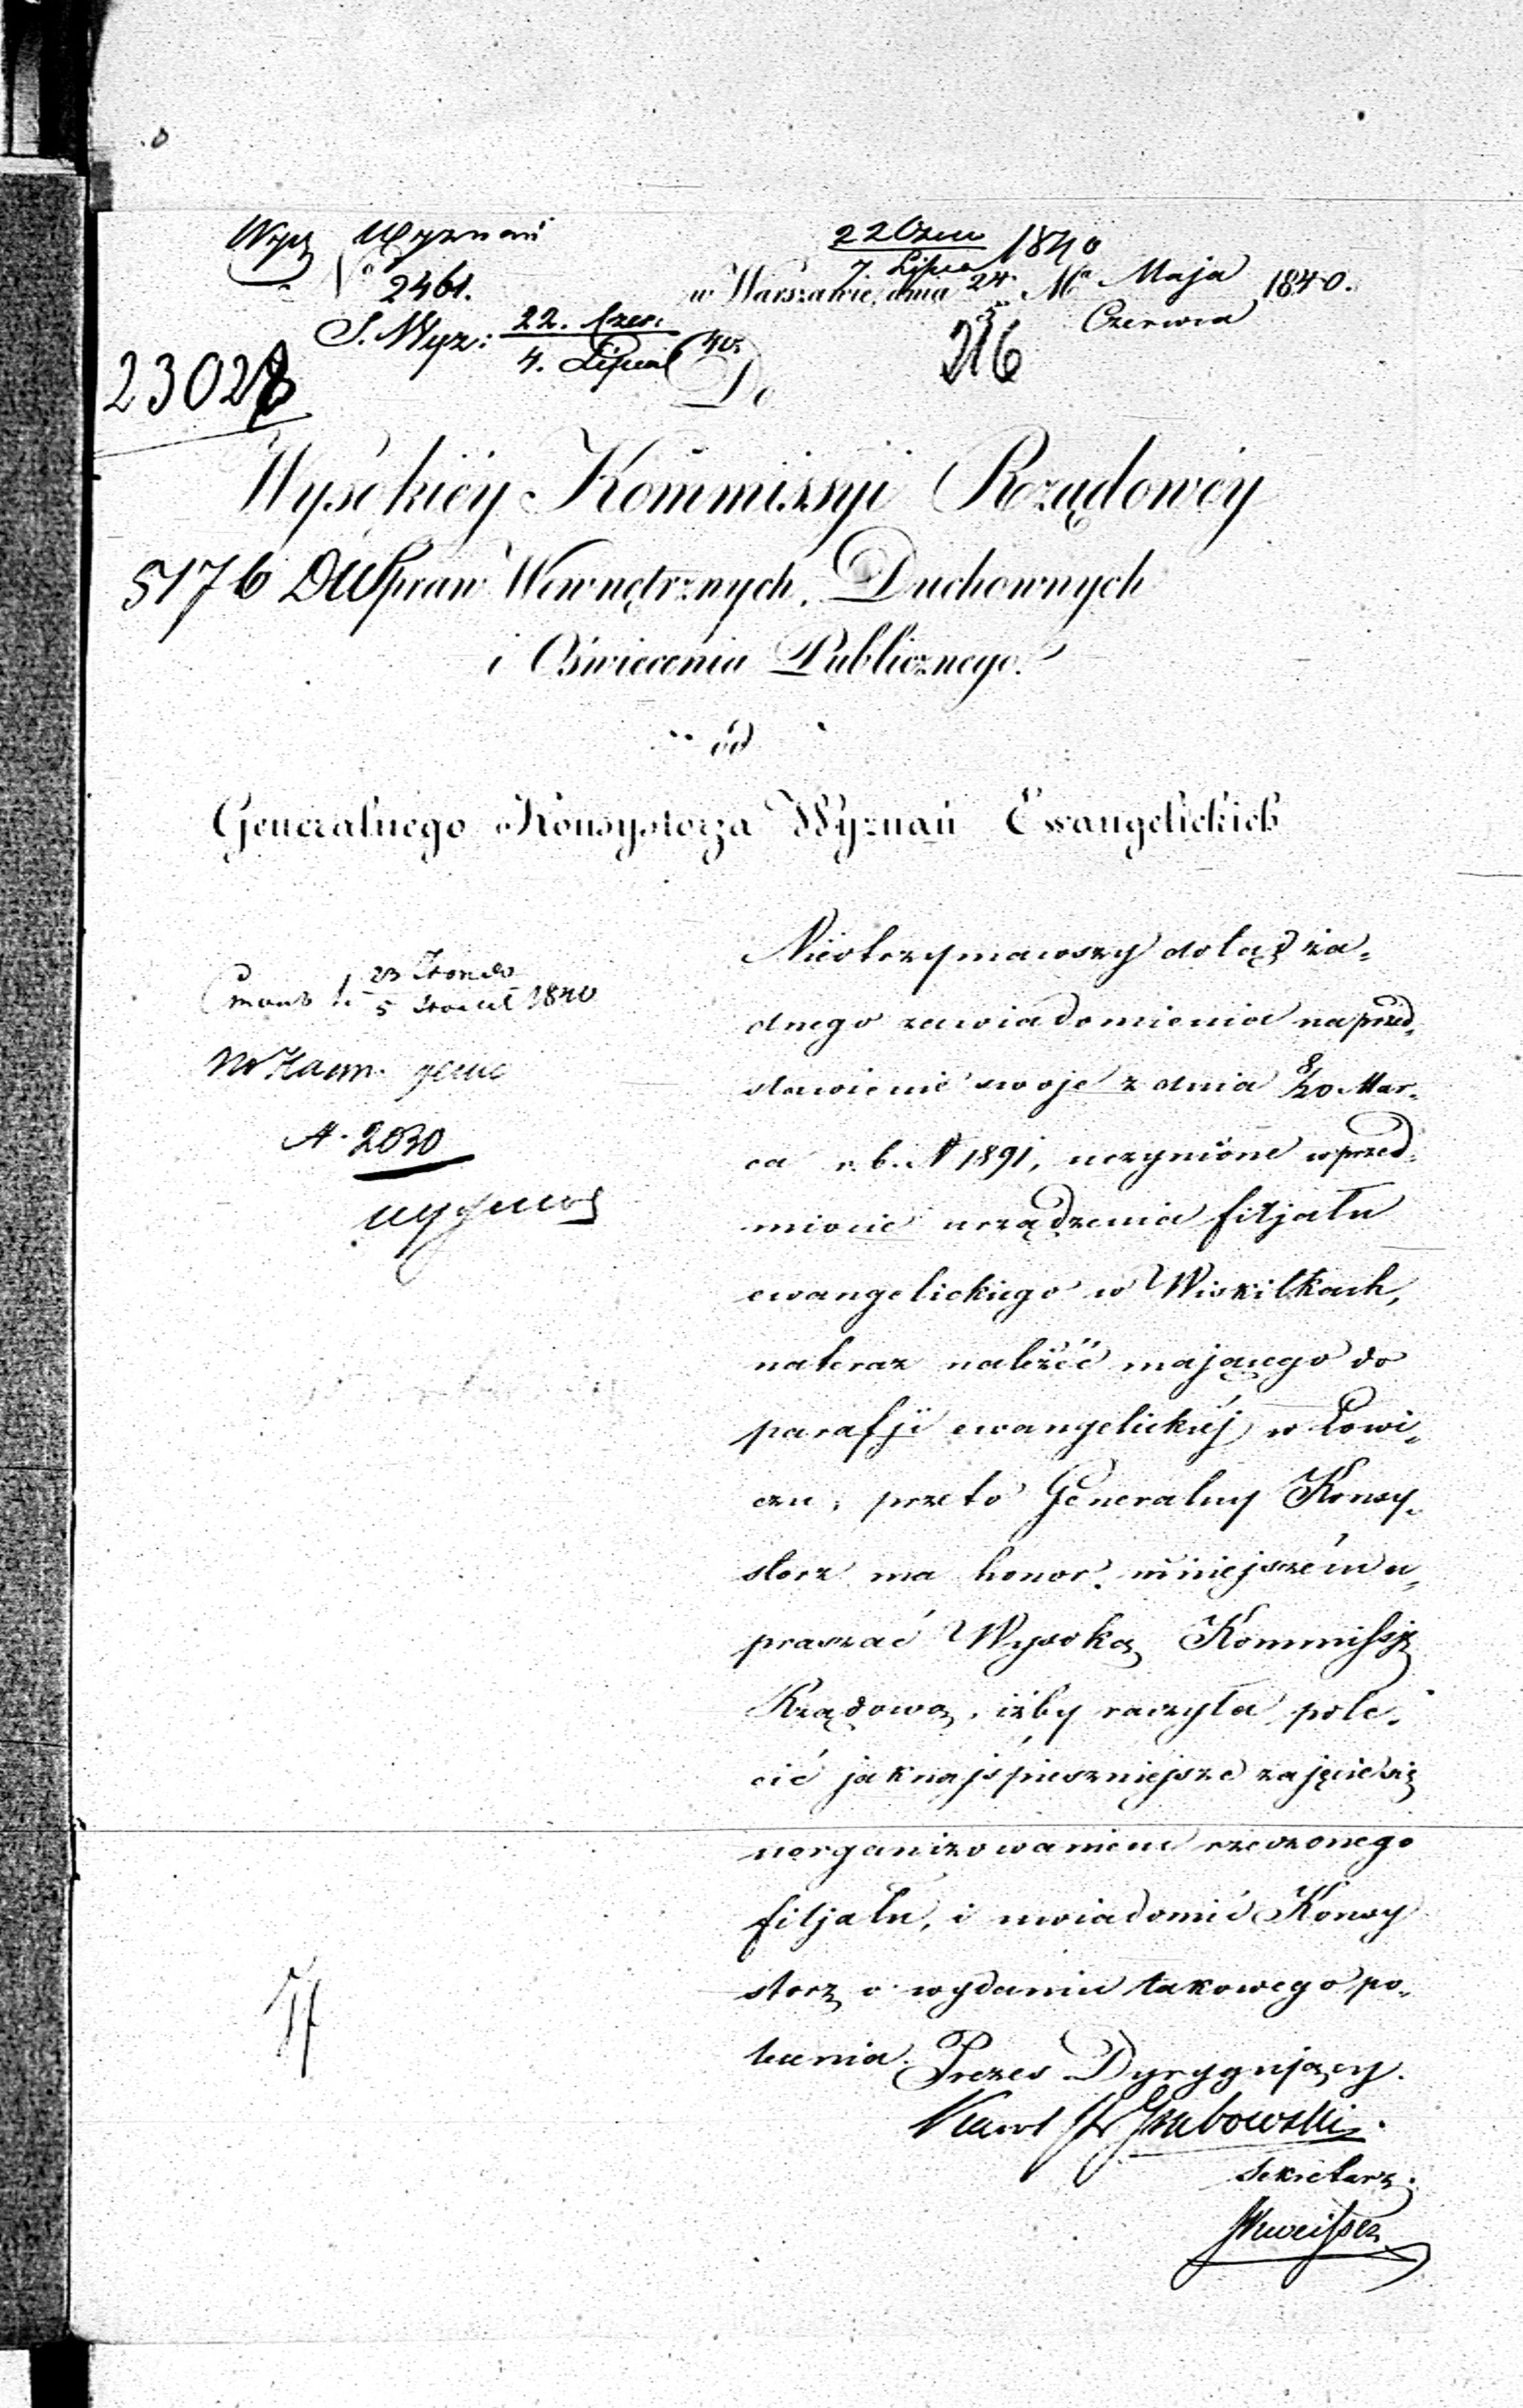 Wyznań
22 Czer. 1840
4. Lipca
No 2461.
w Warszawie, dnia 24 Maja 1840.
Czerwca
S. Wyz: 22. Czer.
4. Lipca 40.
216
23028
Do
Wysokiéy Kommissyi Rządowéy
5176 Spraw Wewnętrznych, Duchownych
i Oświecenia Publicznego.
od
Generalnego Konsystorza Wyznań Ewangelickich
Nieotrzymawszy dotąd ża-
dnego zawiadomienia na przed-
stawienie swoje z dnia 8/20 Mar-
ca r. b. N 1891, uczynione w przed-
miocie urządzenia filjału
ewangelickiego w Wiskitkach,
nateraz należéć mającego do
parafji ewangelickiéj w Łowi-
czu, przeto Generalny Konsy-
storz ma honor niniejszém u-
praszać Wysoką Kommissję
Rządową, iżby raczyła pole-
cić jaknajśpieszniejsze zajęcie się
uorganizowaniem rzeczonego
filjału, i uwiadomić Konsy
storz o wydaniu takowego po-
lecenia.
Prezes Dyrygujący.
Grabowski
Sekretarz.
23
5 1840
2030